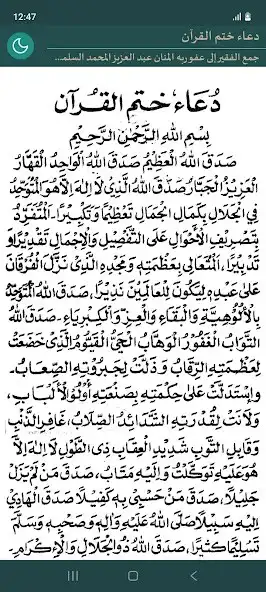 12:47
دعاء ختم القرآن
جمع الفقير إلى عفو ربه المنان عبد العزيز المحمد السلم...
دُعَاءُ خَتْمِ الْقُرْآنِ
بِسْمِ اللهِ الرَّحْمٰنِ الرَّحِيْمِ
صَدَقَ اللهُ الْعَظِيْمُ صَدَقَ اللهُ الْوَاحِدُ الْقَهَّارُ
الْعَزِيْزُ الْجَبَّارُ صَدَقَ اللهُ الَّذِيْ لَا إِلٰهَ إِلَّا هُوَ الْمُتَوَحِّدُ
فِي الْجَلَالِ بِكَمَالِ الْجَمَالِ تَعْظِيْمًا وَتَكْبِيْرًا. الْمُتَفَرِّدُ
بِتَصْرِيْفِ الْأَحْوَالِ عَلَى التَّفْصِيْلِ وَالْإِجْمَالِ تَقْدِيْرًا وَ
تَدْبِيْرًا، الْمُتَعَالِي بِعَظَمَتِهِ وَمَجْدِهِ الَّذِيْ نَزَّلَ الْفُرْقَانَ
عَلٰى عَبْدِهِ لِيَكُوْنَ لِلْعَالَمِيْنَ نَذِيْرًا، صَدَقَ اللهُ الْمُتَوَحِّدُ
بِالْأُلُوْهِيَّةِ وَالْبَقَاءِ وَالْعِزِّ وَالْكِبْرِيَاءِ. صَدَقَ اللهُ
التَّوَّابُ الْغَفُوْرُ الْوَهَّابُ الْحَيُّ الْقَيُّوْمُ الَّذِيْ خَضَعَتْ
لِعَظَمَتِهِ الرِّقَابُ وَذَلَّتْ لِجَبَرُوْتِهِ الصِّعَابُ.
وَاسْتَدَلَّتْ عَلٰى حِكْمَتِهِ بِصَنْعَتِهِ أُوْلُو الْأَلْبَابِ،
وَلَانَتْ لِقُدْرَتِهِ الشَّدَائِدُ الصِّلَابُ، غَافِرِ الذَّنْبِ
وَقَابِلِ التَّوْبِ شَدِيْدِ الْعِقَابِ ذِي الطَّوْلِ لَا إِلٰهَ إِلَّا
هُوَ عَلَيْهِ تَوَكَّلْتُ وَإِلَيْهِ مَتَابِ، صَدَقَ مَنْ لَمْ يَزَلْ
جَلِيْلًا، صَدَقَ مَنْ حَسْبِيْ بِهِ كَفِيْلًا صَدَقَ الْهَادِيْ
إِلَيْهِ سَبِيْلًا صَلَّى اللهُ عَلَيْهِ وَاٰلِهِ وَصَحْبِهِ وَسَلَّمَ
تَسْلِيْمًا كَثِيْرًا، صَدَقَ اللهُ ذُو الْجَلَالِ وَالْإِكْرَامِ.